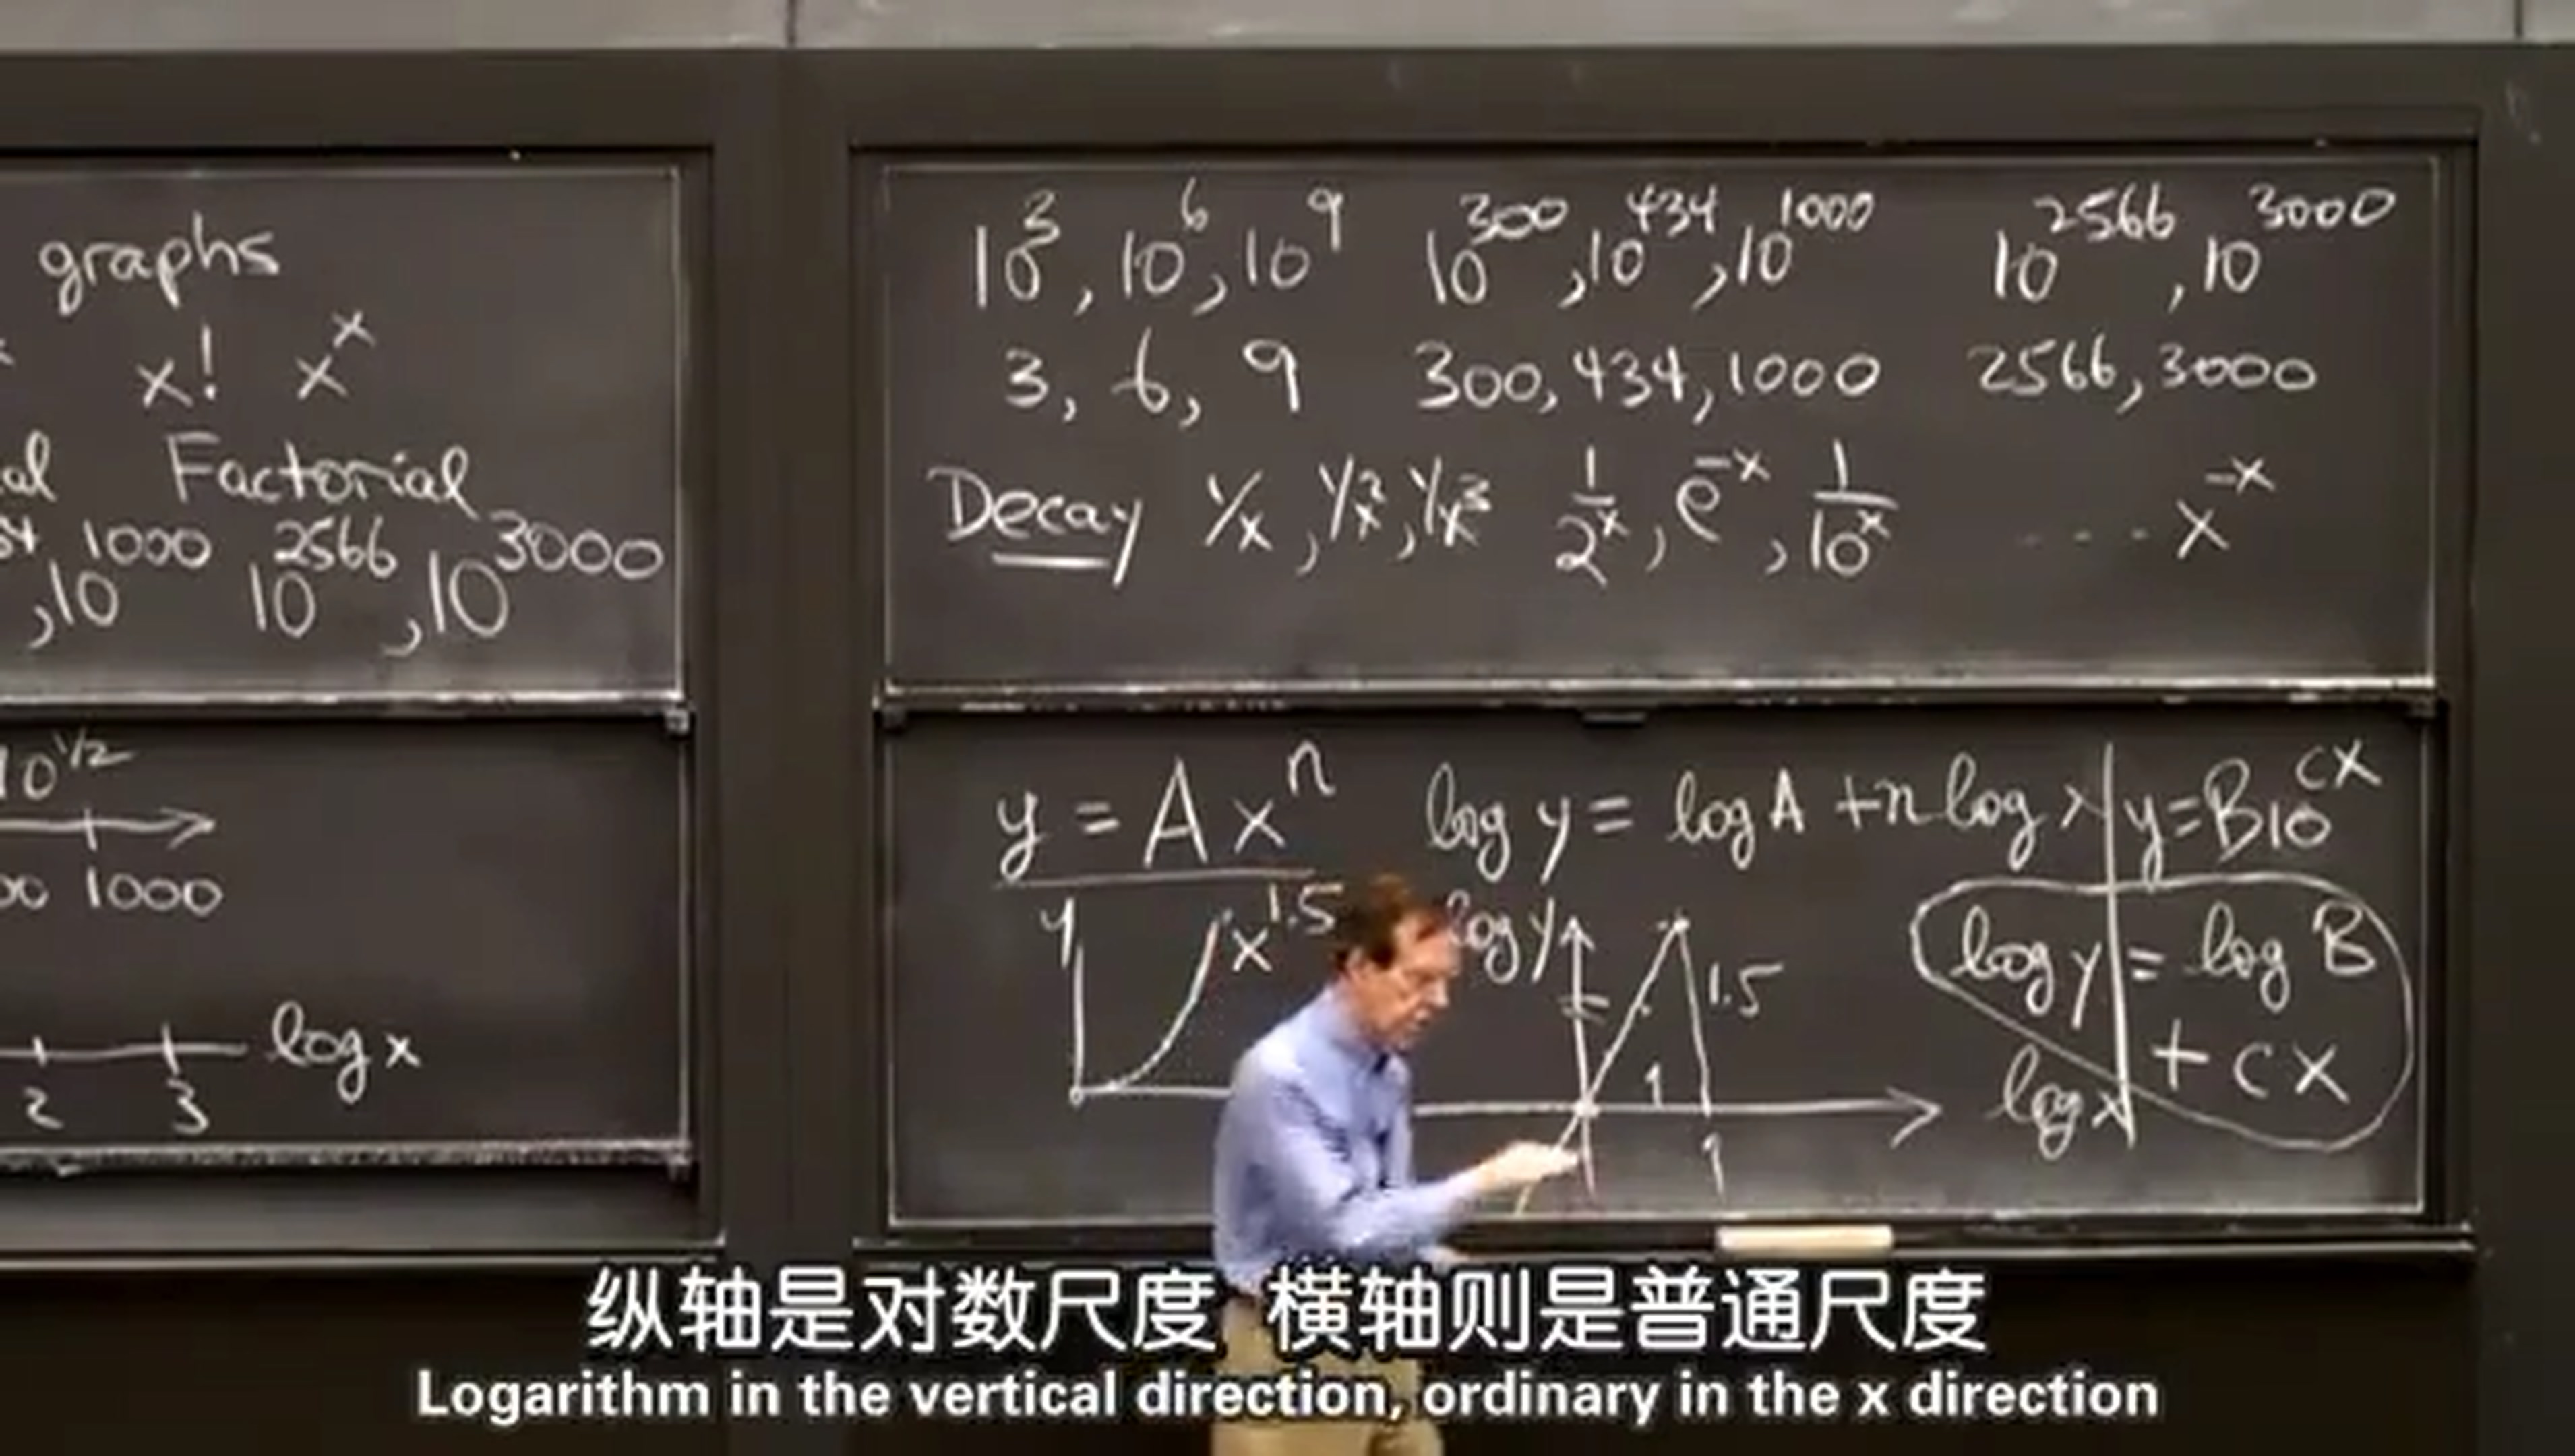 graphs
x! x^x
al Factorial
34 1000 2566 3000
,10 10 ,10
10^1/2
00 1000
log x
2 3
10^3, 10^6, 10^9 10^300, 10^434, 10^1000 10^2566, 10^3000
3, 6, 9 300, 434, 1000 2566, 3000
Decay 1/x, 1/x^2, 1/x^3 1/2^x, e^-x, 1/10^x .... x^-x
y = Ax^n log y = log A + n log x y = B10^cx
y x^1.5 log y 1.5 log y = log B
1 + cx
log x
1
纵轴是对数尺度 横轴则是普通尺度
Logarithm in the vertical direction, ordinary in the x direction